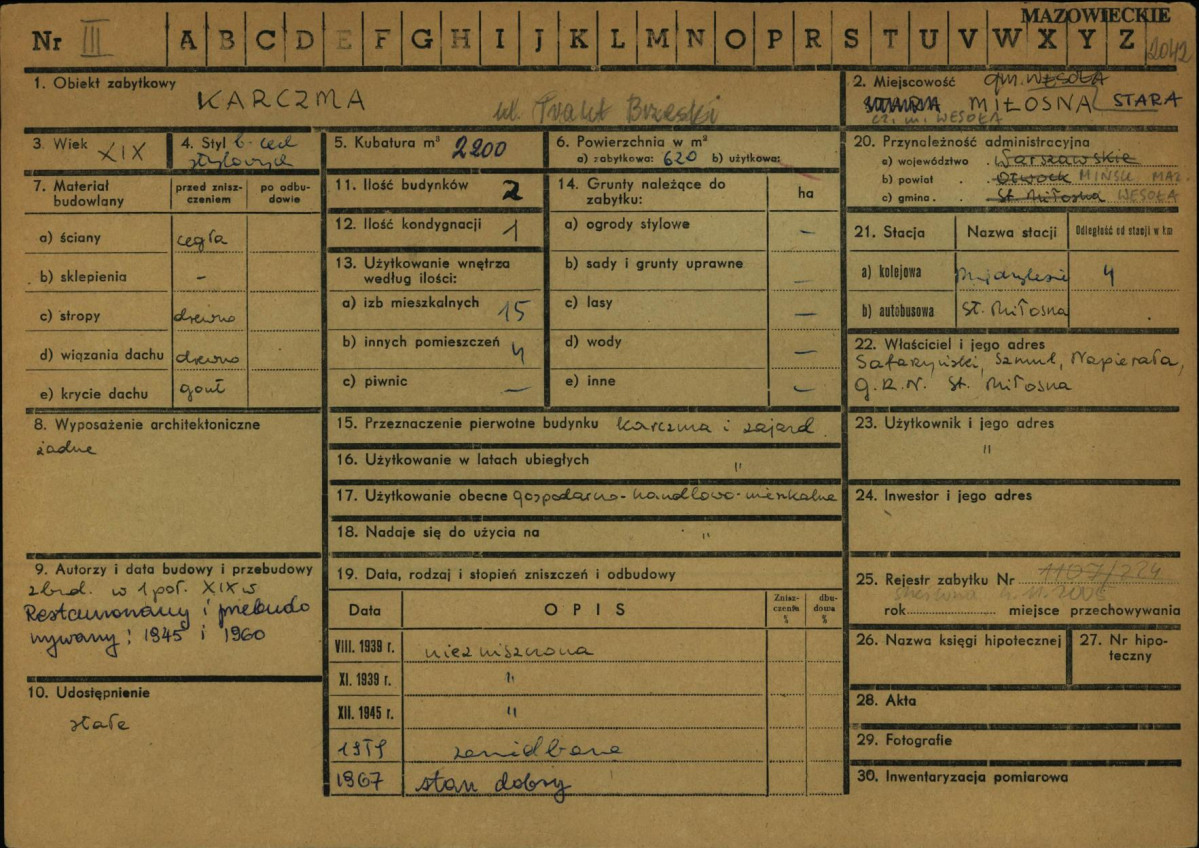 MAZOWIECKIE
Nr III A B C D E F G H I J K L M N O P R S T U V W X Y Z 2042
1. Obiekt zabytkowy
KARCZMA
ul. Trakt Brzeski
2. Miejscowość gm. WESOŁA
MIŁOSNA STARA
cz. m. WESOŁA
3. Wiek XIX
4. Styl b. cech
stylowych
5. Kubatura m³ 2200
6. Powierzchnia w m²
a) zabytkowa: 620 b) użytkowa:
7. Materiał budowlany
przed zniszczeniem
po odbudowie
a) ściany cegła
b) sklepienia –
c) stropy drewno
d) wiązania dachu drewno
e) krycie dachu gont
8. Wyposażenie architektoniczne
żadne
9. Autorzy i data budowy i przebudowy
zbud. w 1 poł. XIX w
Restaurowany i przebudo
wywany: 1945 i 1960
10. Udostępnienie
stałe
11. Ilość budynków 2
12. Ilość kondygnacji 1
13. Użytkowanie wnętrza
według ilości:
a) izb mieszkalnych 15
b) innych pomieszczeń 4
c) piwnic –
14. Grunty należące do
zabytku: ha
a) ogrody stylowe –
b) sady i grunty uprawne –
c) lasy –
d) wody –
e) inne –
15. Przeznaczenie pierwotne budynku karczma i zajazd
16. Użytkowanie w latach ubiegłych "
17. Użytkowanie obecne gospodarno-handlowo-mieszkalne
18. Nadaje się do użycia na "
19. Data, rodzaj i stopień zniszczeń i odbudowy
Data OPIS Zniszczenie % dbudowa %
VIII. 1939 r. niezniszczona
XI. 1939 r. "
XII. 1945 r. "
zaniedbana
1967 stan dobry
20. Przynależność administracyjna
a) województwo . Warszawskie
b) powiat . . Otwock MIŃSK MAZ.
c) gmina . . St. Miłosna WESOŁA
21. Stacja Nazwa stacji Odległość od stacji w km
a) kolejowa Międzylesie 4
b) autobusowa St. Miłosna
22. Właściciel i jego adres
Szmul, Napierała,
G.R.N. St. Miłosna
23. Użytkownik i jego adres
"
24. Inwestor i jego adres
25. Rejestr zabytku Nr 1107/224
rok miejsce przechowywania
26. Nazwa księgi hipotecznej
27. Nr hipoteczny
28. Akta
29. Fotografie
30. Inwentaryzacja pomiarowa